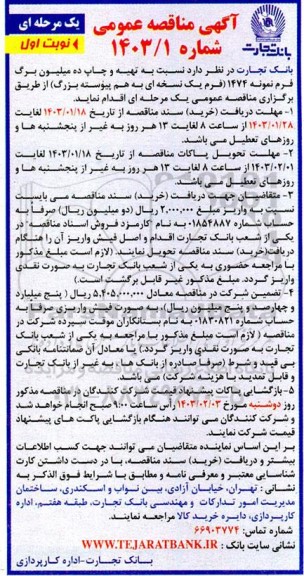 آگهی مناقصه عمومی
یک مرحله ای
شماره ۱۴۰۳/۱
نوبت اول
بانک تجارت
بانک تجارت در نظر دارد نسبت به تهیه و چاپ ده میلیون برگ
فرم نمونه ۱۴۷۴ (فرم یک نسخه ای به هم پیوسته بزرگ) از طریق
برگزاری مناقصه عمومی یک مرحله ای اقدام نماید.
۱- مهلت دریافت (خرید) سند مناقصه از تاریخ ۱۴۰۳/۰۱/۱۸ لغایت
۱۴۰۳/۰۱/۲۸ از ساعت ۸ لغایت ۱۳ هر روز به غیر از پنجشنبه ها و
روزهای تعطیل می باشد.
۲- مهلت تحویل پاکات مناقصه از تاریخ ۱۴۰۳/۰۱/۱۸ لغایت
۱۴۰۳/۰۲/۰۱ از ساعت ۸ لغایت ۱۳ هر روز به غیر از پنجشنبه ها و
روزهای تعطیل می باشد.
۳- متقاضیان جهت دریافت (خرید) سند مناقصه می بایست
نسبت به واریز مبلغ ۲,۰۰۰,۰۰۰ ریال (دو میلیون ریال) صرفاً به
حساب شماره ۰۱۸۵۴۸۸۷ به نام "کارمزد فروش اسناد مناقصه" در
یکی از شعب بانک تجارت اقدام و اصل فیش واریز آن را هنگام
دریافت (خرید) سند مناقصه تحویل نمایند. (لازم است مبلغ مذکور
با مراجعه حضوری به یکی از شعب بانک تجارت به صورت نقدی
واریز گردد. مبلغ مذکور غیر قابل برگشت است.)
۴- تضمین شرکت در مناقصه معادل ۵,۴۰۵,۰۰۰,۰۰۰ ریال (پنج میلیارد
و چهارصد و پنج میلیون ریال) می باشد که به صورت فیش واریز وجه به
حساب شماره ۰۱۸۳۰۸۲۱ به نام بستانکاران موقت سپرده شرکت در
مناقصه (لازم است مبلغ مذکور با مراجعه به یکی از شعب بانک
تجارت به صورت نقدی واریز گردد.) یا معادل آن ضمانتنامه بانکی
بی قید و شرط (صرفاً صادره از بانک ها به غیر از بانک تجارت و
قابل تمدید با هزینه شرکت) می باشد.
۵- بازگشایی پاکات پیشنهاد قیمت شرکت کنندگان در مناقصه مذکور
روز دوشنبه مورخ ۱۴۰۳/۰۲/۰۳ رأس ساعت ۹:۰۰ صبح انجام خواهد شد
و شرکت کنندگان می توانند هنگام بازگشایی پاکت های پیشنهاد
قیمت شرکت نمایند.
بر این اساس نماینده متقاضیان می توانند جهت کسب اطلاعات
بیشتر و دریافت (خرید) سند مناقصه، با در دست داشتن کارت
شناسایی معتبر و معرفی نامه و مطابق با شرایط فوق الذکر به
نشانی : تهران، خیابان آزادی، بین نواب و اسکندری، ساختمان
مدیریت امور تدارکات و مهندسی بانک تجارت، طبقه هفتم، اداره
کارپردازی، دایره خرید کالا مراجعه نمایند.
شماره تماس: ۶۶۹۰۳۷۷۴
نشانی سایت بانک : WWW.TEJARATBANK.IR
بانک تجارت-اداره کارپردازی